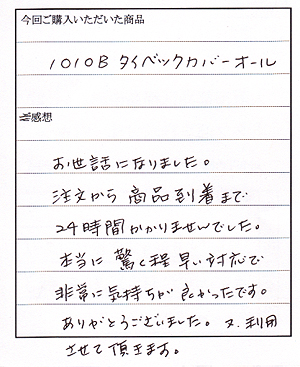 今回ご購入いただいた商品
1010B タイベックカバーオール
ご感想
お世話になりました。
注文から商品到着まで
24時間かかりませんでした。
本当に驚く程早い対応で
非常に気持ちが良かったです。
ありがとうございました。又、利用
させて頂きます。